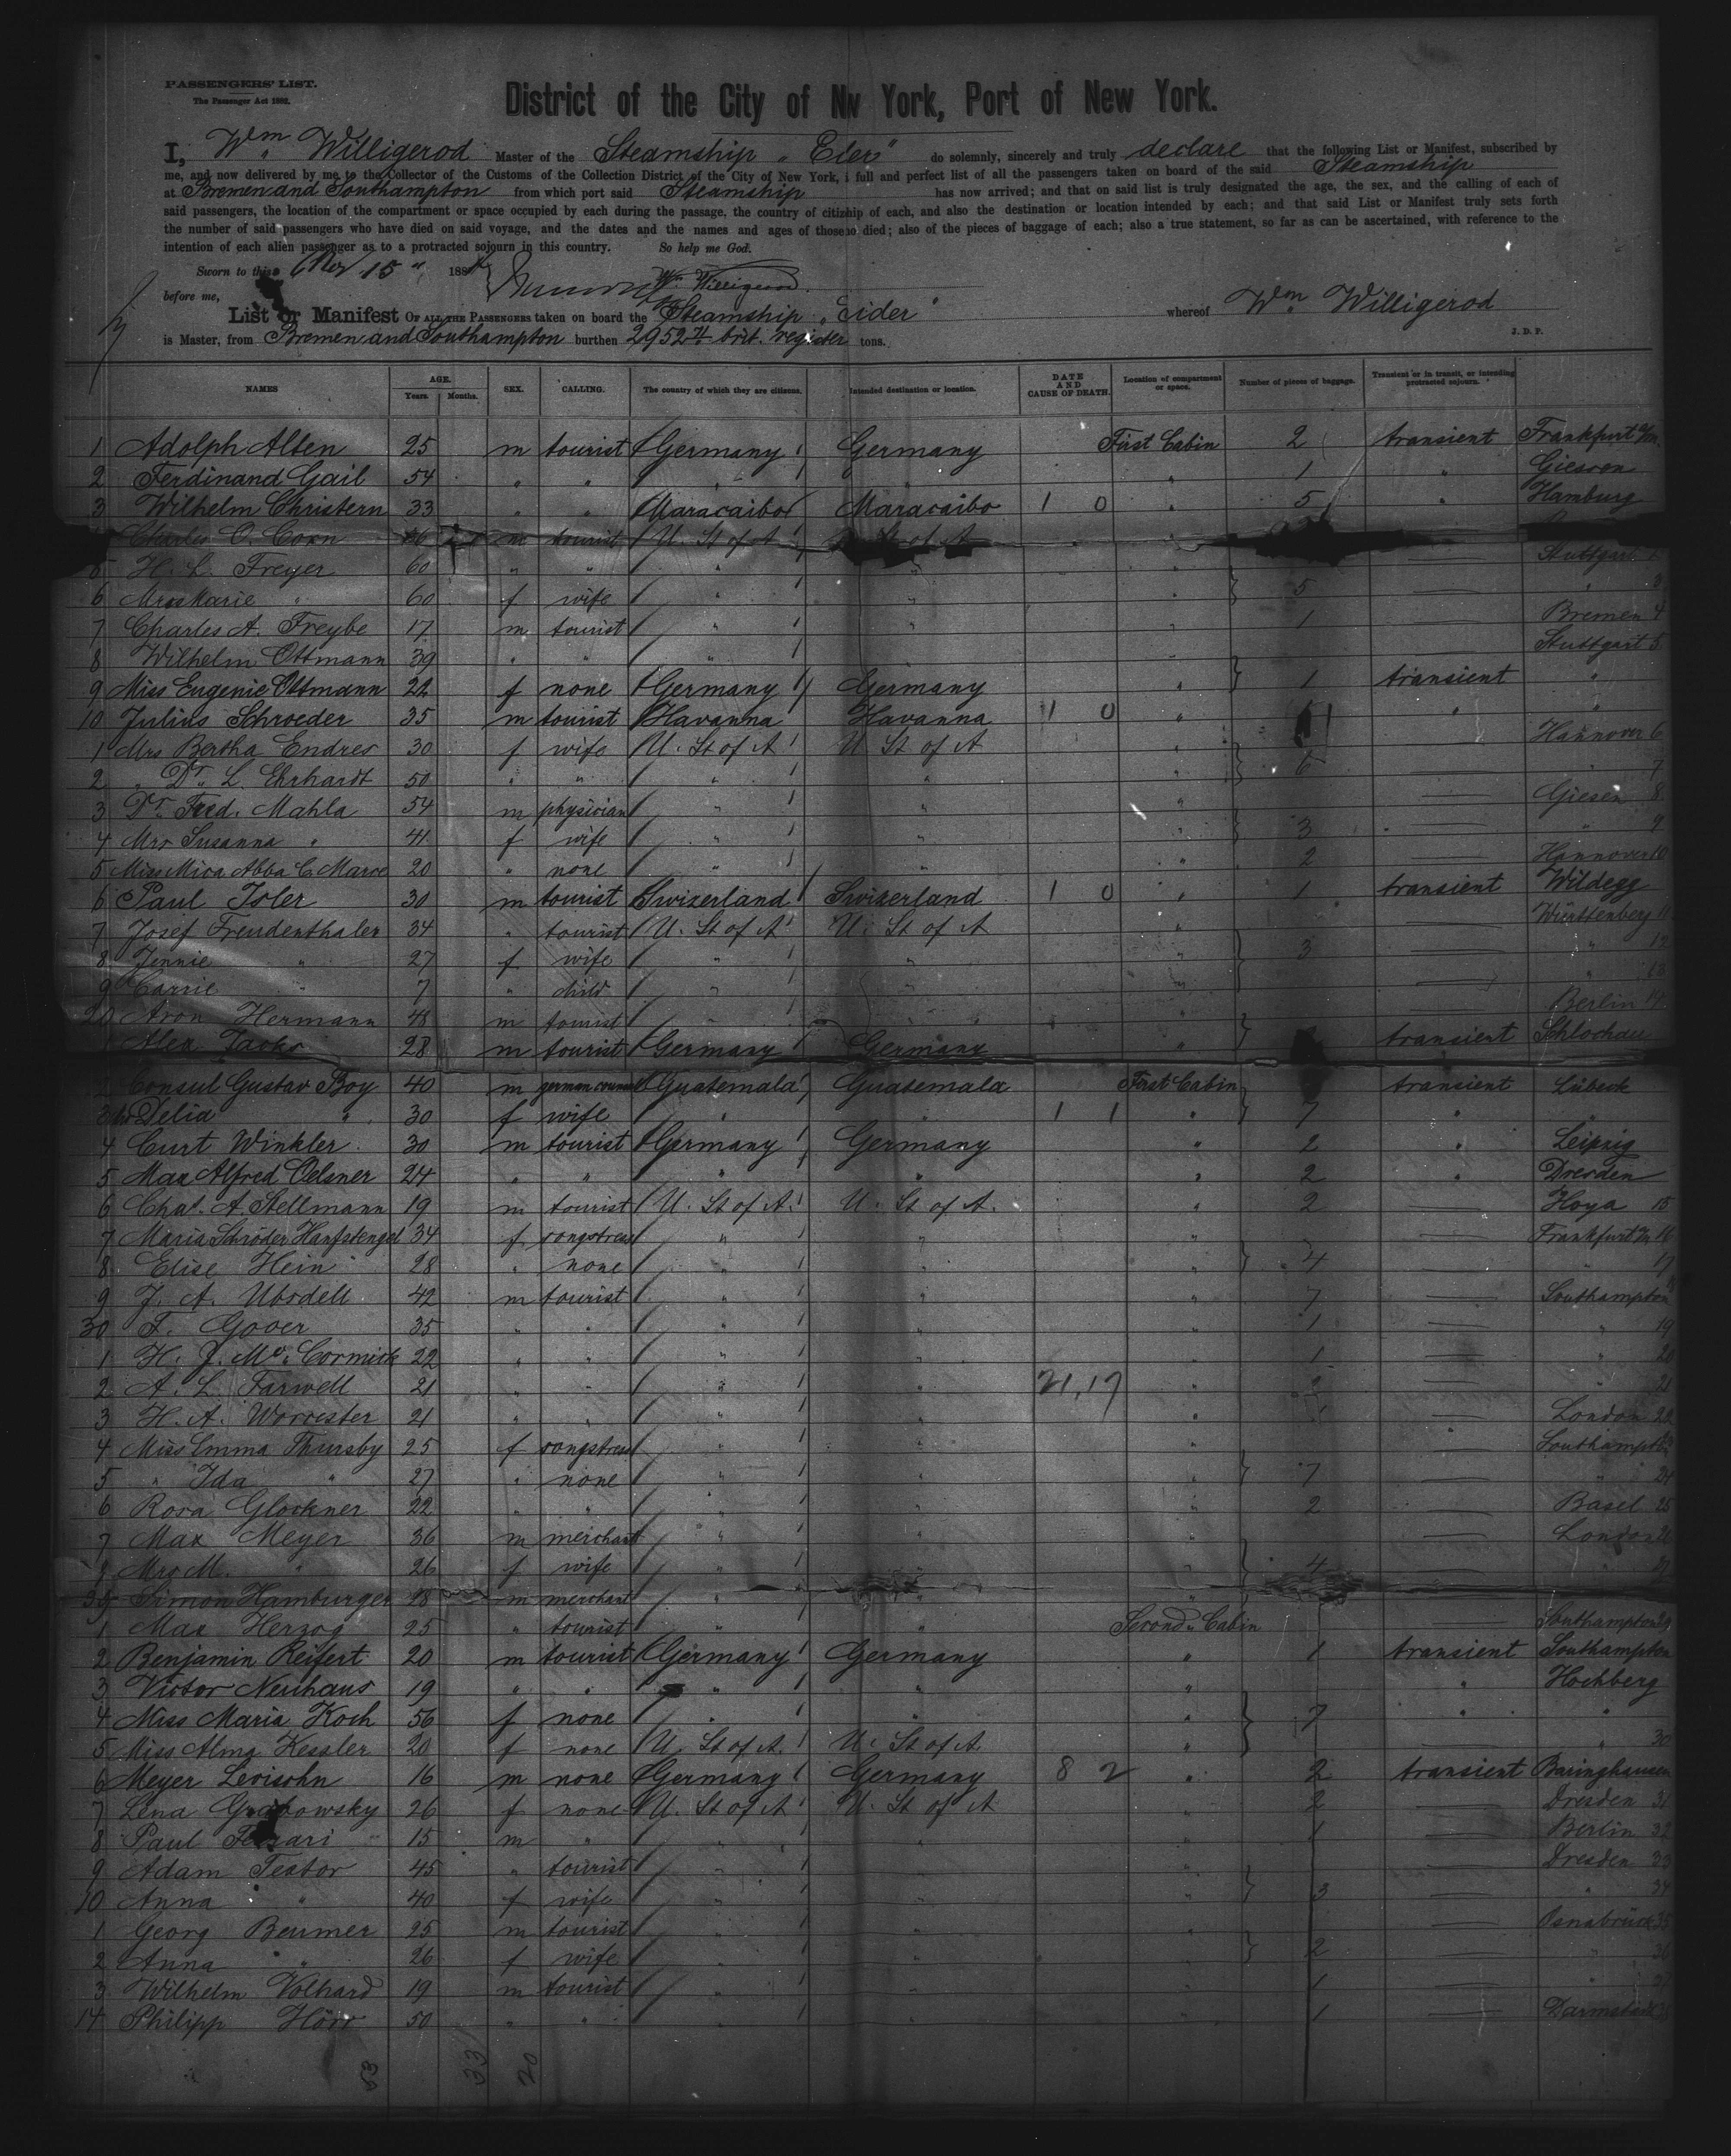 PASSENGERS' LIST.
The Passenger Act 1882.
District of the City of New York, Port of New York.
I, Wm Willigerod Master of the Steamship "Eider" do solemnly, sincerely and truly declare that the following List or Manifest, subscribed by
me, and now delivered by me to the Collector of the Customs of the Collection District of the City of New York, i full and perfect list of all the passengers taken on board of the said Steamship
at Bremen and Southampton from which port said Steamship has now arrived; and that on said list is truly designated the age, the sex, and the calling of each of
said passengers, the location of the compartment or space occupied by each during the passage, the country of citizhip of each, and also the destination or location intended by each; and that said List or Manifest truly sets forth
the number of said passengers who have died on said voyage, and the dates and the names and ages of those ho died; also of the pieces of baggage of each; also a true statement, so far as can be ascertained, with reference to the
intention of each alien passenger as to a protracted sojourn in this country. So help me God.
Sworn to this Nov 15 188
before me, Wm Willigerod
List or Manifest OF ALL THE PASSENGERS taken on board the Steamship "Eider" whereof Wm Willigerod
is Master, from Bremen and Southampton burthen 2952 brit. register tons. J. D. P.
NAMES AGE. Years. Months. SEX. CALLING. The country of which they are citizens. Intended destination or location. DATE AND CAUSE OF DEATH. Location of compartment or space. Number of pieces of baggage. Transient or in transit, or intending protracted sojourn.
1 Adolph Alten 25 m tourist Germany Germany First Cabin 2 transient Frankfurt a/m
2 Ferdinand Gail 54 " " " " " 1 " Giessen
3 Wilhelm Christern 33 " " Maracaibo Maracaibo 1 0 " 5 " Hamburg
Charles O. Corn m tourist U. St of A St of A
H. L. Freyer 60 " " " " " Stuttgart 2
6 Mrs Marie " 60 f wife " " " 5 " 3
7 Charles A. Freybe 17 m tourist " " " 1 Bremen 4
8 Wilhelm Ottmann 39 " " " Stuttgart 5
9 Miss Eugenie Ottmann 22 f none Germany Germany " 1 transient "
10 Julius Schroeder 35 m tourist Havanna Havanna 1 0 " 1 " "
1 Mrs Bertha Endres 30 f wife U. St of A U St of A " Hannover 6
2 " Dr. L. Ehrhardt 50 " " " " " 6 " 7
3 Dr. Fred. Mahla 54 m physician " " " Giesen 8
4 Mrs Susanna " 41 f wife " " " 3 " 9
5 Miss Mica Abba C Marce 20 " none " " " 2 Hannover 10
6 Paul Isler 30 m tourist Swizerland Swizerland 1 0 " 1 transient Wildegg
7 Josef Freudenthaler 34 " tourist U. St of A U. St of A " Württenberg 11
8 Jennie " 27 f wife " " " 3 " 12
9 Carrie " 7 " child " " " " 13
20 Aron Hermann 48 m tourist " " " Berlin 14
Alex Jacks 28 m tourist Germany Germany " transient Schlochau
Consul Gustav Boy 40 m german consul Guatemala Guatemala First Cabin transient Lübeck
3 Mrs Delia " 30 f wife " " 1 1 " 7 " "
4 Curt Winkler 30 m tourist Germany Germany " 2 " Leipzig
5 Max Alfred Oelsner 24 " " " " " 2 " Dresden
6 Chas. A. Stellmann 19 m tourist U. St of A. U. St of A. " 2 Hoya 15
7 Maria Schröder Hanfstengel 34 f songstress " " " Frankfurt M 16
8 Elise Hein 28 " none " " " 4 " 17
9 J. A. Ubsdell 42 m tourist " " " 7 Southampton
30 F. Gover 35 " " " " " 1 " 19
1 H. J. Mc. Cormick 22 " " " " " 1 " 20
2 A. L. Farwell 21 " " " " 21,17 " 2 " 21
3 H. A. Worcester 21 " " " " " 1 London 22
4 Miss Emma Thursby 25 f songstress " " " Southampton
5 " Ida " 27 " none " " " 7 " 24
6 Rosa Glockner 22 " " " " " 2 Basel 25
7 Max Meyer 36 m merchant " " " London 26
Mrs M. " 26 f wife " " " 4 " 27
39 Simon Hamburger 28 m merchant " " "
1 Max Herzog 25 " tourist " " Second Cabin Southampton 29
2 Benjamin Reifert 20 m tourist Germany Germany " 1 transient Southampton
3 Victor Neuhaus 19 " " " " " " Hochberg
4 Miss Maria Koch 56 f none " " " 7 " "
5 Miss Alma Kessler 20 f none U. St of A. U. St of A. " " 30
6 Meyer Levisohn 16 m none Germany Germany 8 2 " 2 transient Baringhausen
7 Lena Grabowsky 26 f none U. St of A U. St of A " 2 Dresden 31
8 Paul 15 m " " " " 1 Berlin 32
9 Adam Textor 45 " tourist " " " Dresden 33
10 Anna " 40 f wife " " " 3 " 34
1 Georg Beumer 25 m tourist " " " Osnabrück 35
2 Anna " 26 f wife " " " 2 " 36
3 Wilhelm Volhard 19 m tourist " " " 1 "
14 Philipp Hörr 50 " " " " " 1 Darmstadt
53 33 20